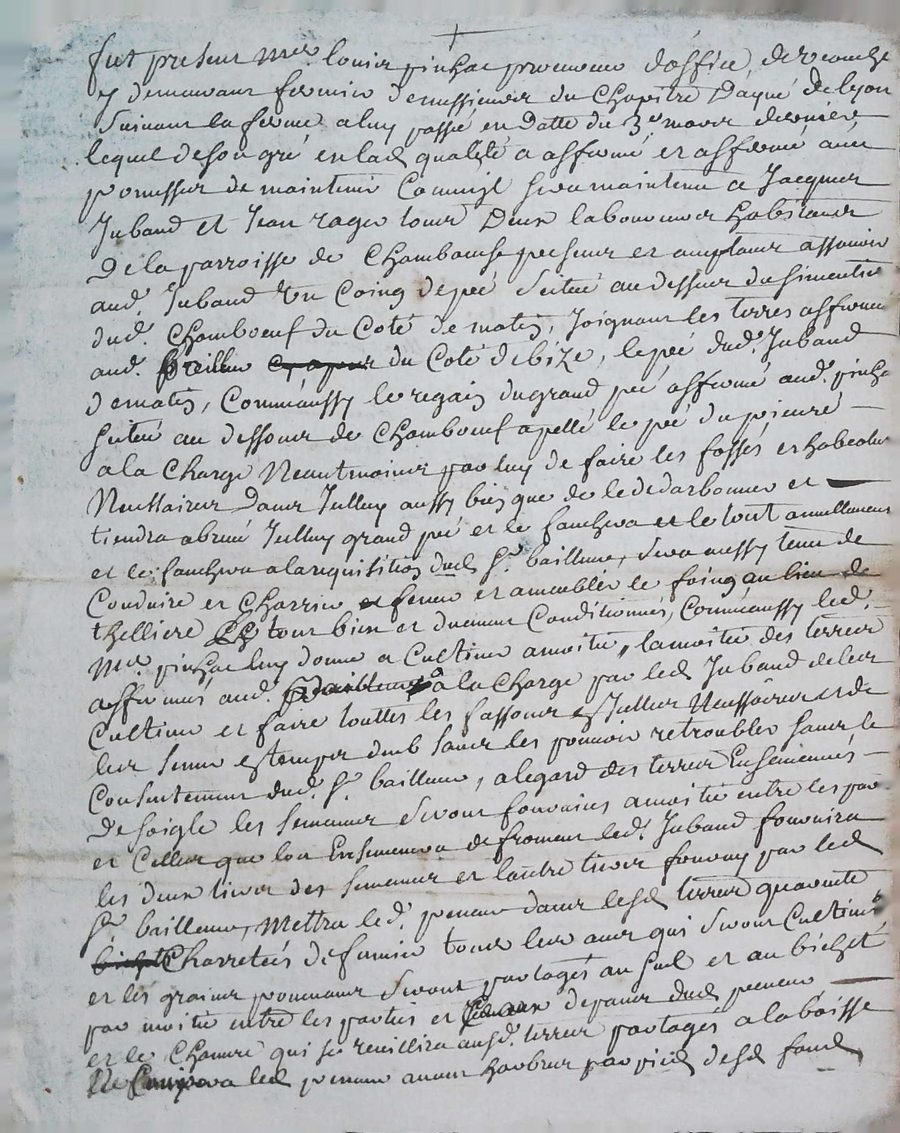 fut presant Mre. Louis pinhac procureur d'office de veauche
y demeurant fermier de messieurs du Chapitre Daqué de lyon
Suivant la ferme a luy passé en datte du 3e. mars dernier
lequel de son gré en lad qualité a affermé et afferme avec
promesse de maintenir Comm'il sera maintenu a Jacques
Juband et Jean ragey tous Deux laboureurs habitants
De la parroisse de Chambœuf presents et acceptants assavoir
aud. Juband Un Coing de pré Scitué au dessus du simentiere
dud. Chambœuf du Coté de matin, Joignant les terres affermé
aud. du Coté de bize, le pré dud. Juband
de matin, Comm'aussy le regain du grand pré affermé aud. pinhac
Scitué au dessous de Chambœuf apellé le pré du prieuré
a la Charge Neantmoins par luy de faire les fossés et
Nessaires dans Jcelluy aussy bien que de le dedarbonner et
tiendra abrué Jcelluy grand pré et le fauchera et le tout annuellement
et le fauchera a la requisition dud Sr. bailleur, Sera aussy tenu de
Conduire et Charrier fener et ameubler le foing au lieu de
thelliere le tout bien et duement Conditionné, Comm'aussy led.
Mre. pinhac luy donne a Cultiver a moitié, la moitié des terres
affermés aud. a la Charge par led Juband de les
Cultiver et faire touttes les fassons Jcelles Nessaires et de
les semer et temps deub sans les pouvoir retroubler sans le
Consentement dud. Sr. bailleur, a legard des terres Ensemencés
De soigle les semances Seront fournies a moitié entre les par
et Celles que lon Ensemencera de froment led. Juband fournira
les deux tiers des semances et lautre tiers fourny par led
Sr. bailleur, Mettra led. preneur dans lesd terres quarante
Charretées de fumier tous les ans qui Seront Cultivés
et les grains provenants Seront partagés au sol et au bichet
par moitié entre les parties et de paner dud preneur
et le Chanvre qui se recuillira ausd. terres partagés a la baisse
led preneur aucun harbres par pied desd fond